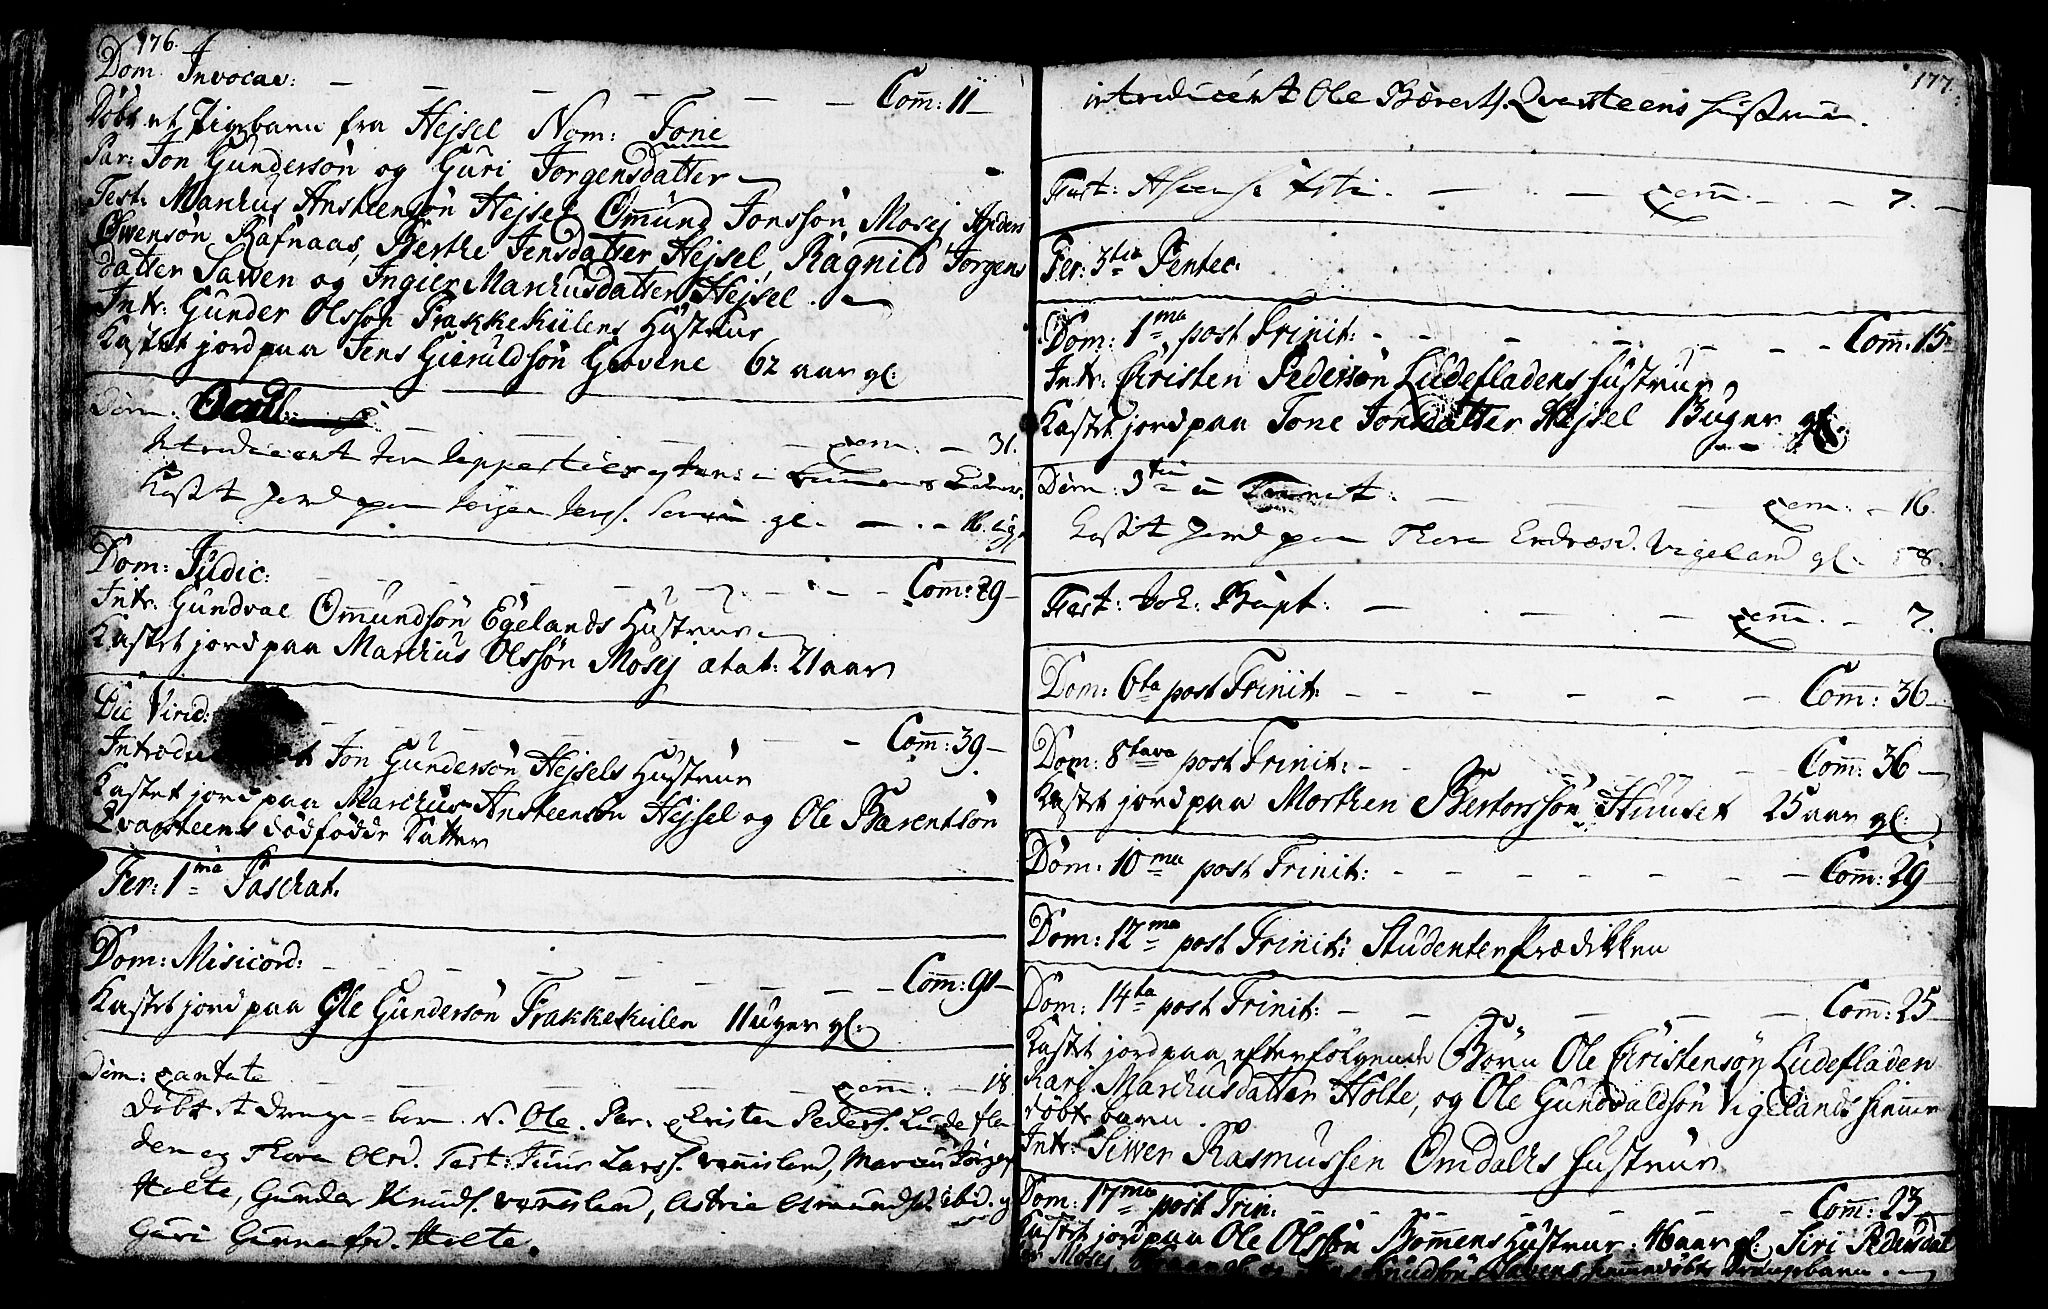 176.
Dom. Invocav: Com̄: 11
Døbt et Pigebarn fra Hejsel Nom: Tone
Par: Jon Gundersøn og Guri Jorgensdatter
Test: Markus Ansteensøn Hejsel Omund Jonssøn Mosej
Øwensøn Rafnaas, Berthe Jensdatter Hejsel, Ragnild Jorgens
datter Sawen og Ingier Markusdatter Hejsel.
Intr: Gunder Olssøn Frakkekiilens Hustrue
Kastet jord paa Jens Gieruldsøn Grovene 62 aar gl:
Dom: Com: 31.
Introduceert
Kastet Jord paa Jørgen Jens. gl. 16.
Dom: Judic: Com̄: 29
Intr: Gundval Omundsøn Egelands Hustrue
Kastet jord paa Markus Olssøn Mosej ætat: 21 aar
Die Virid: Com̄: 39
Jon Gundersøn Hejsels Hustrue
Kastet jord paa Markus Ansteensøn Hejsel og Ole Barentsøn
Qvarsteens dødfødde Datter
Fer: 1ma Paschat.
Dom: Misicord: Com̄: 91
Kastet jord paa Ole Gundersøn Frakkekiilen 11 uger gl:
Dom: Cantate Com̄: 18
Døbt et drenge-barn. N. Ole. Par: Christen Peders. Ludefla
den og Thora Olsd. Test: Lars. Marcus Jørgens.
Holte, Gunder Knuds. ibid. og
Guri Holte.
177.
introduceert Ole Bærents. Qvarsteens Hustrue.
Fest: Com̄. 7.
Fer: 3tia Pentec.
Dom: 1ma post Trinit: Com̄: 15
Intr: Christen Pedersøn Ludefladens Hustrue
Kastet jord paa Tone Jonsdatter Hejsel Uger gl.
Dom: 3tia Trinit: Com: 16.
Kastet Jord paa Thora Endresd. Vigeland gl. 58.
Fest: Joh: Bapt: Com̄. 7.
Dom: 6ta post Trinit: Com̄: 36
Dom: 8tava post Trinit: Com̄: 36
Kastet jord paa Morthen Bertorssøn 25 aar gl:
Dom: 10ma post Trinit: Com̄: 29
Dom: 12ma post Trinit: Studenter Prædikken
Dom: 14ta post Trinit: Com̄: 25
Kastet jord paa efterfølgende Børn Ole Christensøn Ludefladen
Kari Markusdatter Holte, og Ole Gundvaldsøn Vigelands hiemme
døbte barn.
Intr: Siwer Rasmussen Omdals Hustrue
Dom: 17ma post Trin: Com̄: 23
Kastet jord paa Ole Olssøn Bommens Hustrue: 46 aar gl: Siri Pedersdat
Mosej hiemmedøbte Drengebarn.